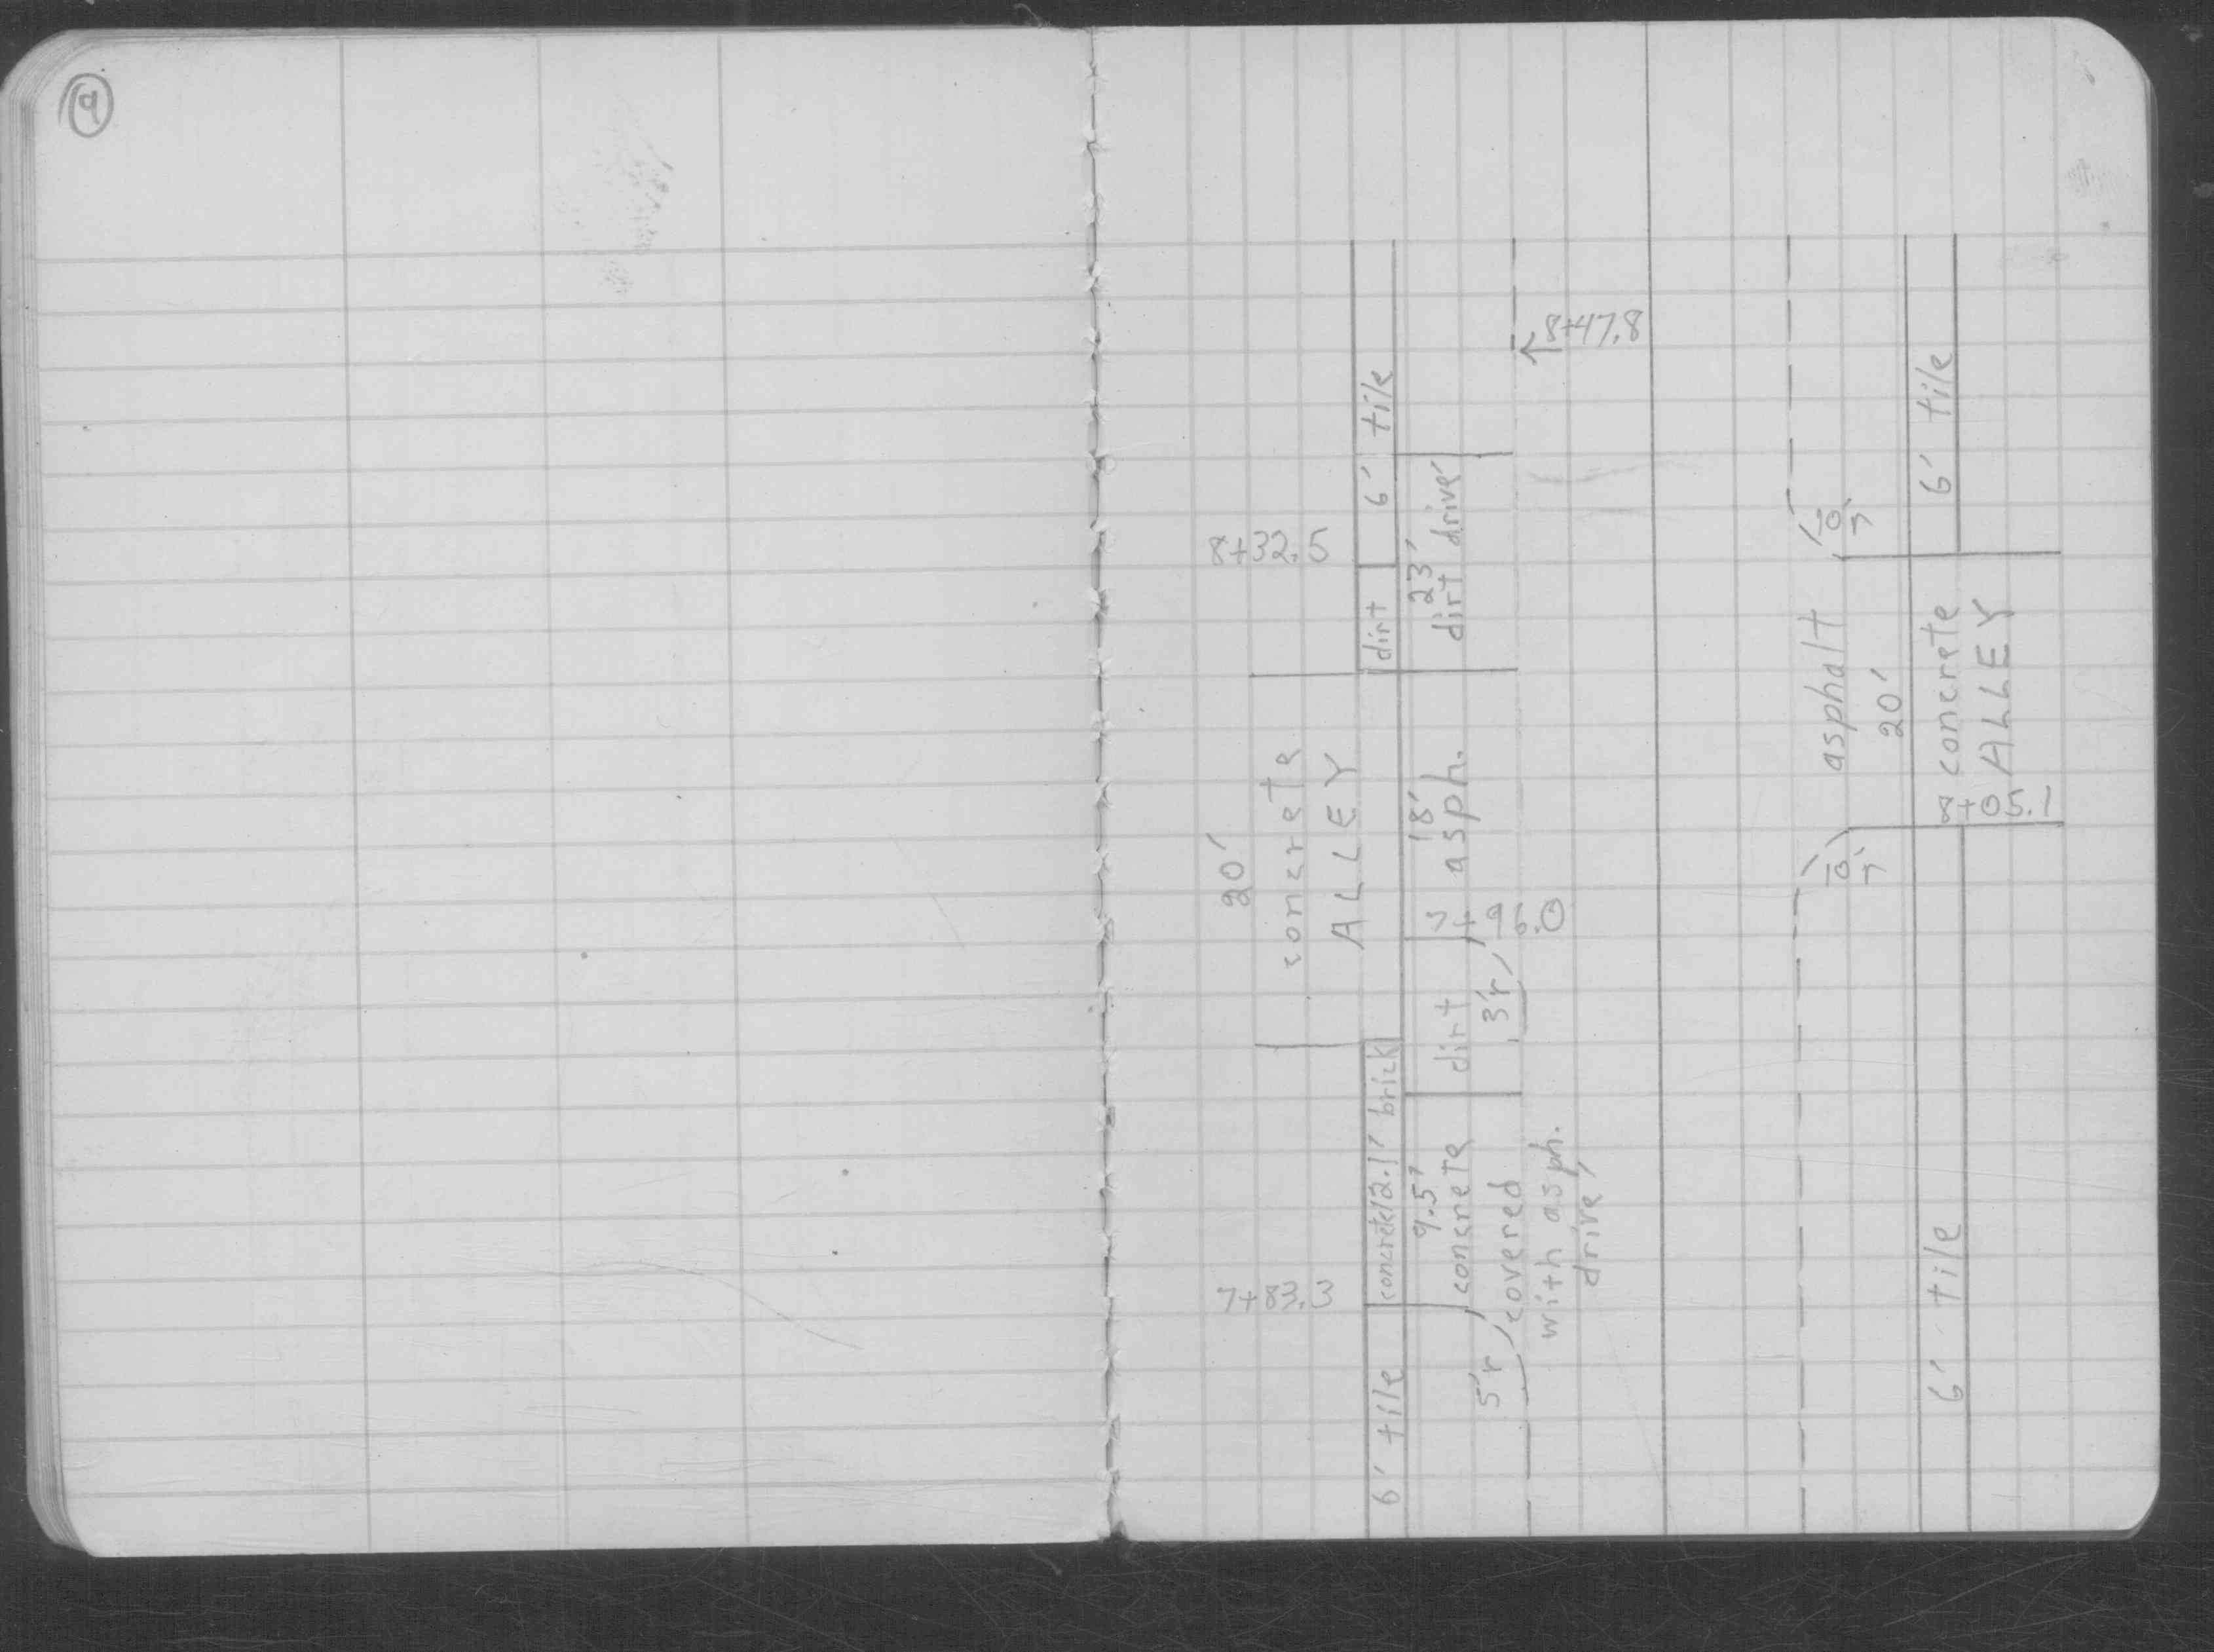 9
8+47.8
6' tile
8+32.5
dirt
23'
dirt drive
20'
concrete
ALLEY
18'
asph.
7+96.0
dirt
3'r
concrete 12.1' brick
9.5'
concrete
covered
with asph.
drive
7+83.3
5'r
6' tile
6' tile
10
7'
asphalt
20'
concrete
ALLEY
8+05.1
10
7'
6' tile